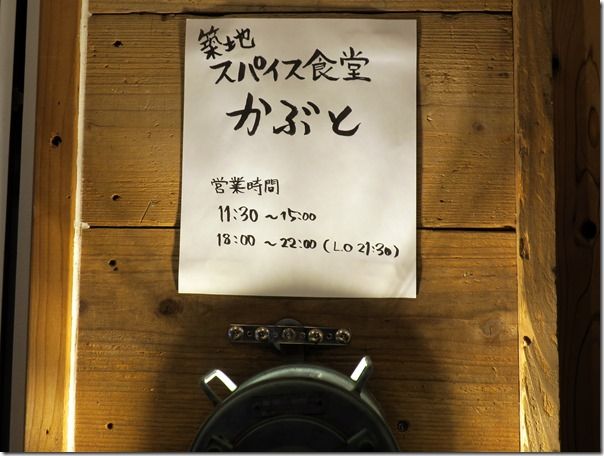 築地
スパイス食堂
かぶと
営業時間
11:30 ~ 15:00
18:00 ~ 22:00 (L.O 21:30)